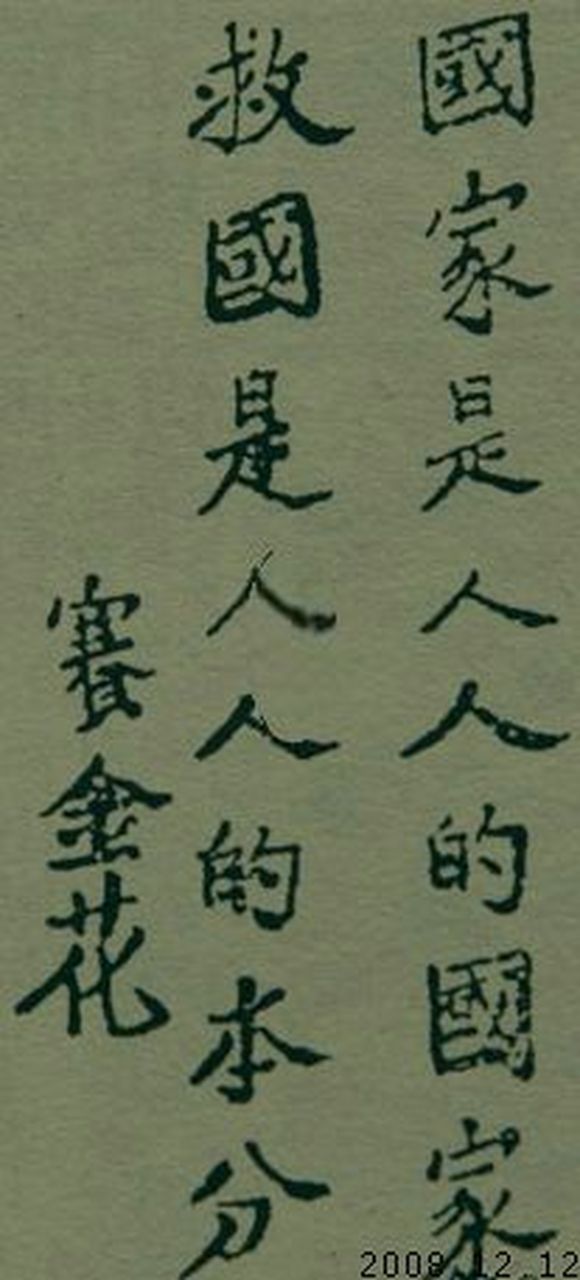 國家是人人的國家
救國是人人的本分
賽金花
2008.12.12